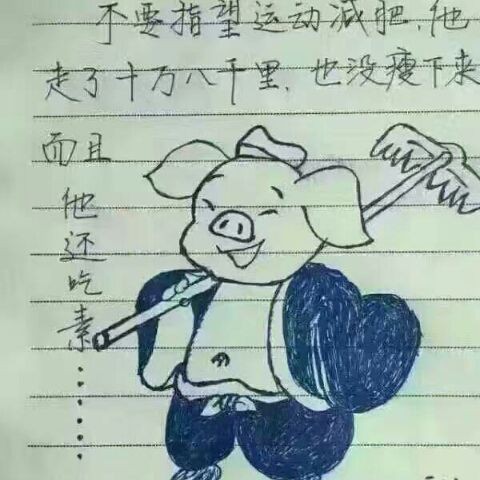 不要指望运动减肥,他
走了十万八千里,也没瘦下来
而且他还吃素……